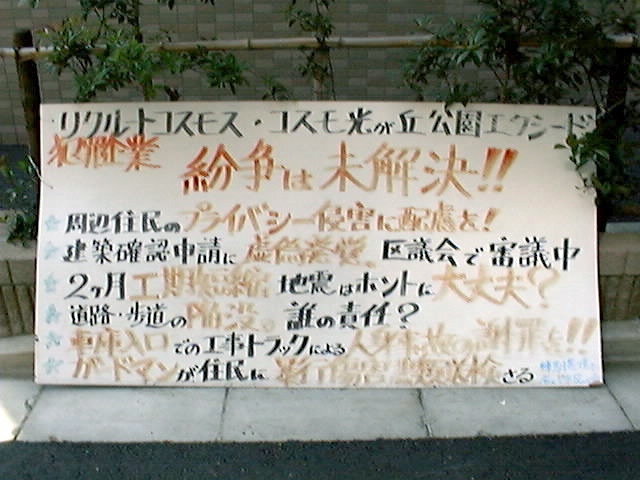 リクルートコスモス・コスモ光が丘公園エクシード
企業 紛争は未解決!!
☆周辺住民のプライバシー侵害に配慮を!
☆建築確認申請に虚偽発覚。区議会で審議中
☆2ヶ月工期短縮 地震はホントに大丈夫?
☆道路・歩道の陥没。誰の責任?
☆車庫入口での工事トラックによる人身事故の謝罪を!!
☆ガードマンが住民に 送検さる